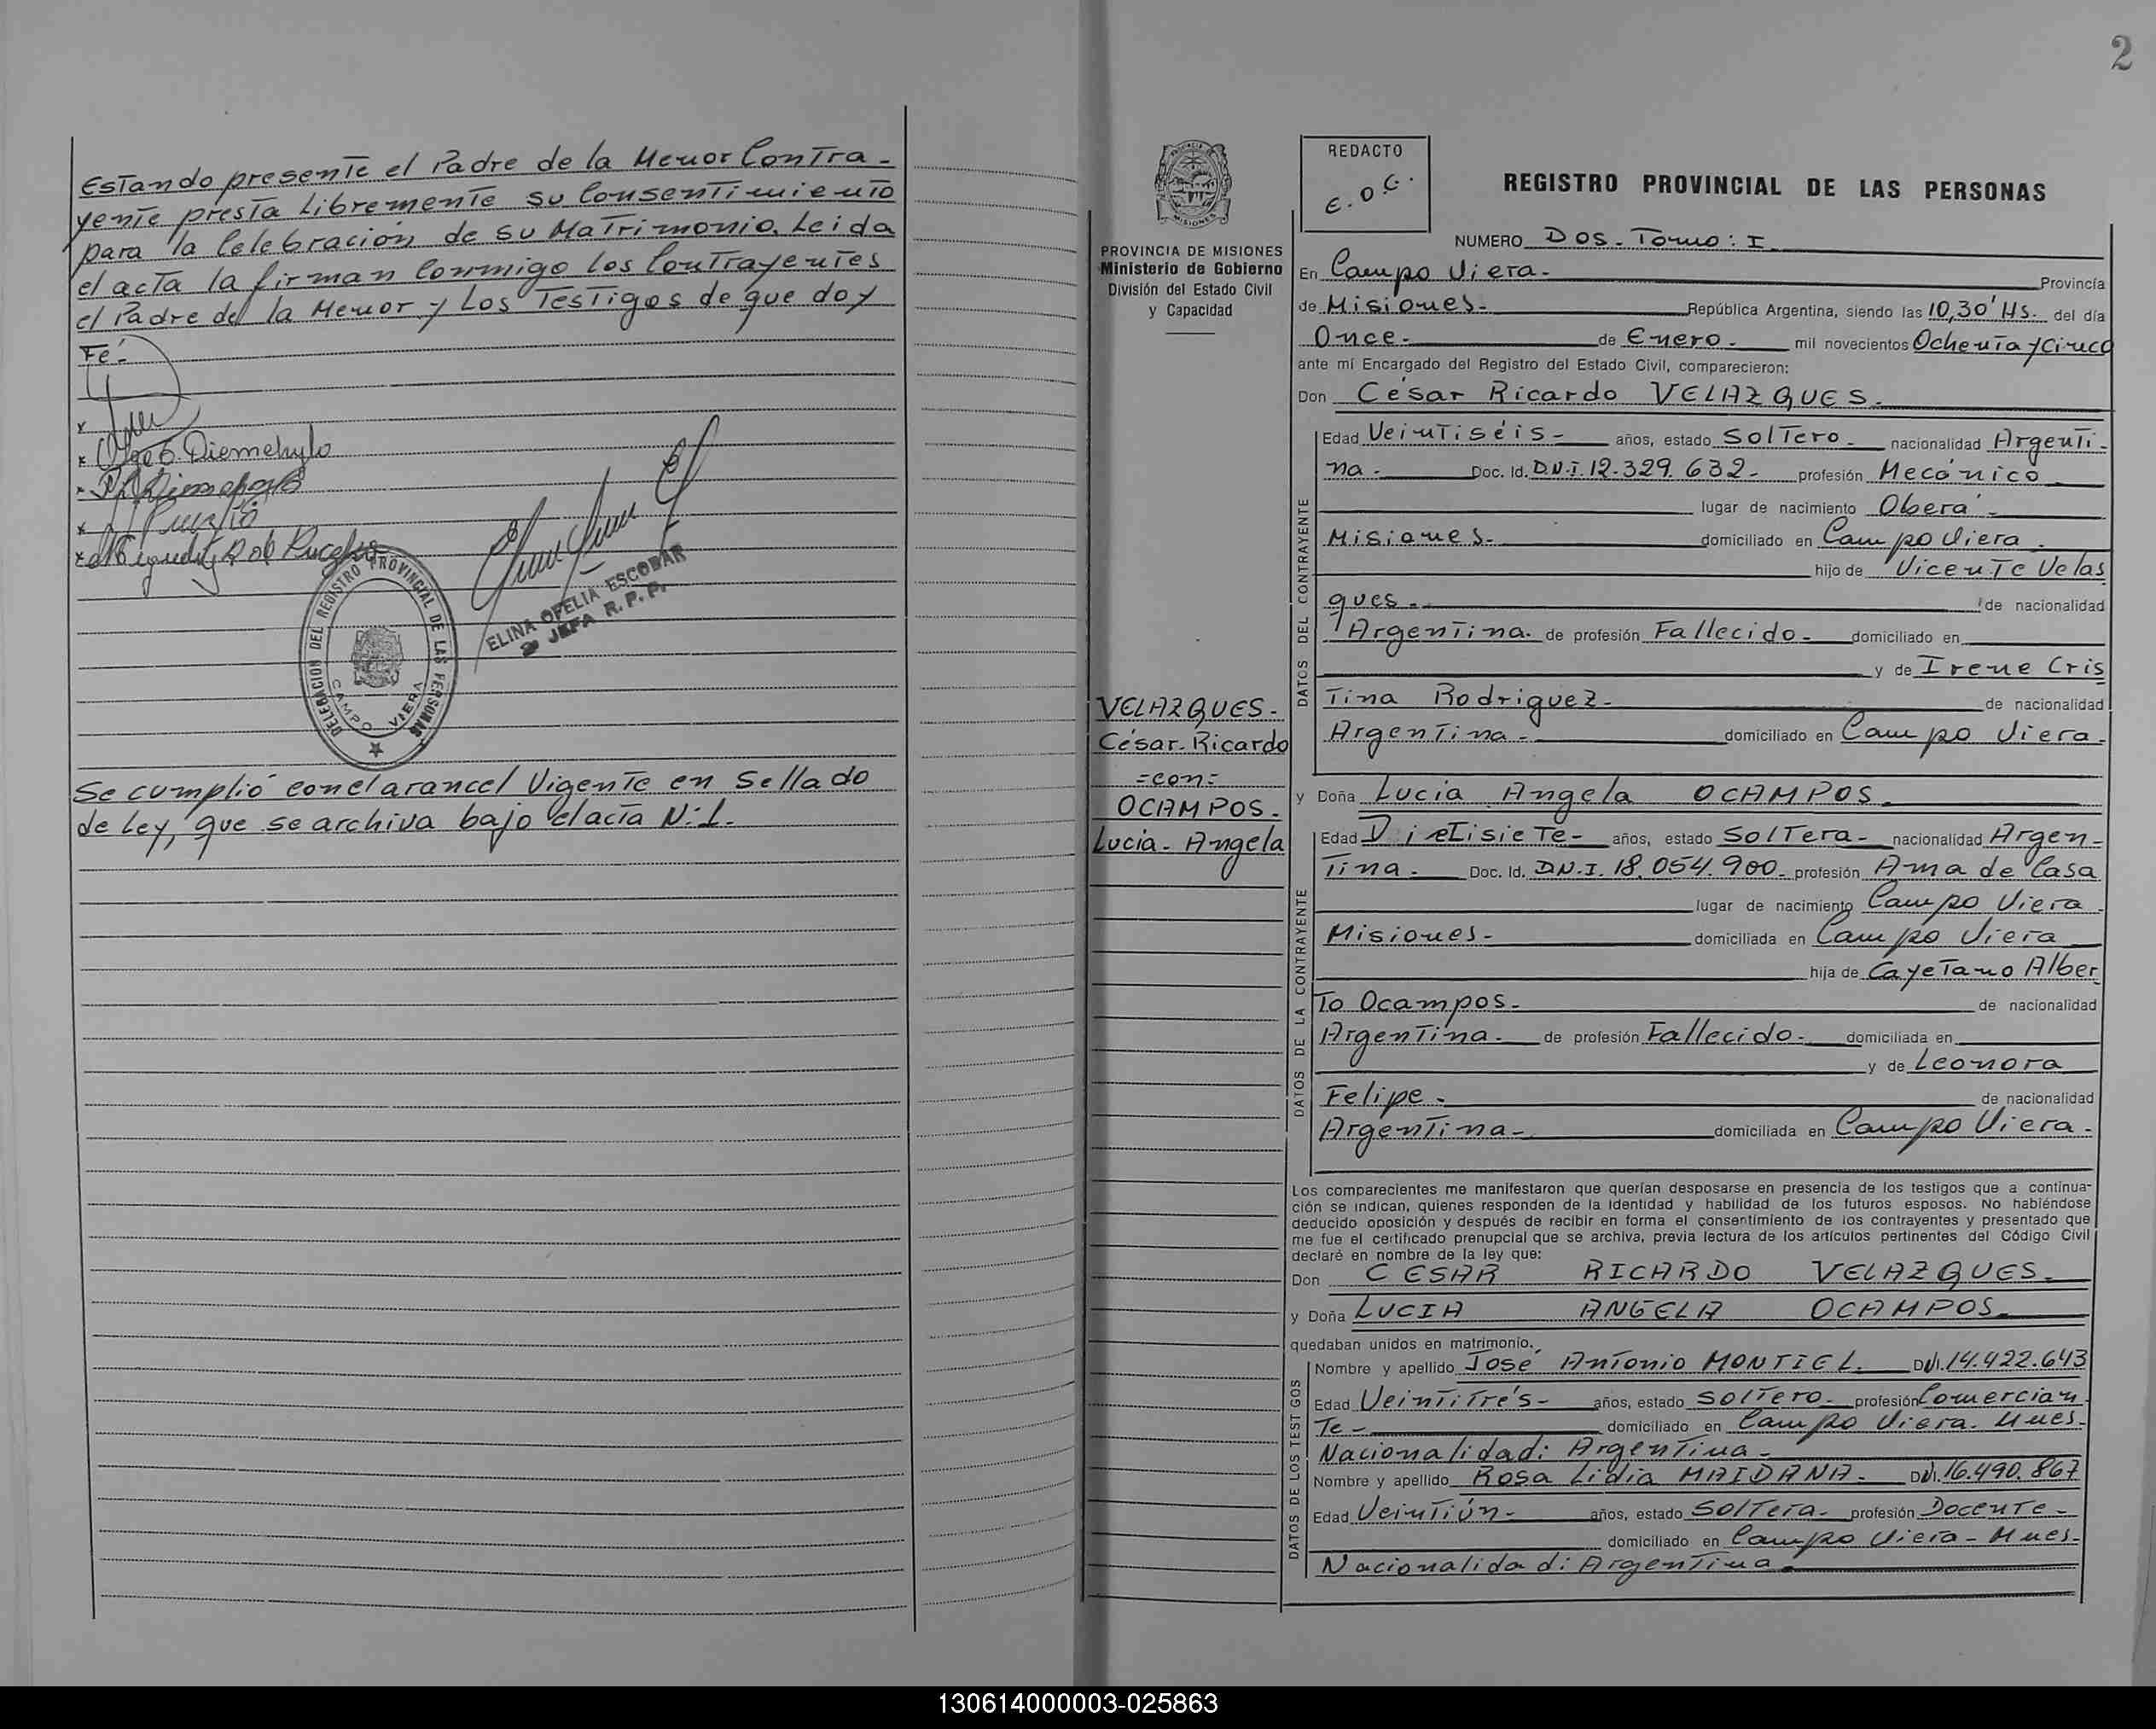 Estando presente el Padre de la Menor Contra-
yente presta libremente su Consentimiento
para la Celebración de su Matrimonio. Leida
el acta la firman Conmigo los Contrayentes
el Padre de la Menor y Los Testigos de que doy
Fé.-
ELINA OFELIA ESCOBAR
JEFA R. P. P.
DELEGACION DEL REGISTRO PROVINCIAL DE LAS PERSONAS
CAMPO VIERA
Se cumplió con el arancel Vigente en Sellado
de Ley, que se archiva bajo el acta N:1.
2
PROVINCIA DE MISIONES
Ministerio de Gobierno
División del Estado Civil
y Capacidad
VELAZQUES-
César-Ricardo
=con=
OCAMPOS.
Lucia-Angela
REDACTO
E.O.C.
REGISTRO PROVINCIAL DE LAS PERSONAS
NUMERO DOS-Tomo: I
En Campo Viera- Provincia
de Misiones- República Argentina, siendo las 10,30' Hs. del día
Once- de Enero- mil novecientos Ochenta y Cinco
ante mí Encargado del Registro del Estado Civil, comparecieron:
Don César Ricardo VELAZQUES-
DATOS DEL CONTRAYENTE
Edad Veintiséis- años, estado Soltero- nacionalidad Argenti-
na- Doc. Id. D.N.I. 12.329.632- profesión Mecánico
lugar de nacimiento Oberá-
Misiones- domiciliado en Campo Viera.
hijo de Vicente Velas
ques- de nacionalidad
Argentina. de profesión Fallecido- domiciliado en
y de Irene Cris
tina Rodriguez- de nacionalidad
Argentina- domiciliado en Campo Viera-
y Doña Lucia Angela OCAMPOS.
DATOS DE LA CONTRAYENTE
Edad Dietisiete- años, estado Soltera- nacionalidad Argen-
tina- Doc. Id. D.N.I. 18.054.900- profesión Ama de Casa
lugar de nacimiento Campo Viera-
Misiones- domiciliada en Campo Viera
hija de Cayetano Alber
to Ocampos- de nacionalidad
Argentina- de profesión Fallecido- domiciliada en
y de Leonora
Felipe- de nacionalidad
Argentina- domiciliada en Campo Viera-
Los comparecientes me manifestaron que querían desposarse en presencia de los testigos que a continua-
ción se indican, quienes responden de la identidad y habilidad de los futuros esposos. No habiéndose
deducido oposición y después de recibir en forma el consentimiento de los contrayentes y presentado que
me fue el certificado prenupcial que se archiva, previa lectura de los artículos pertinentes del Código Civil
declaré en nombre de la ley que:
Don CESAR RICARDO VELAZQUES-
y Doña LUCIA ANGELA OCAMPOS-
quedaban unidos en matrimonio.
DATOS DE LOS TESTIGOS
Nombre y apellido José Antonio MONTIEL- DNI. 14.422.643
Edad Veintitrés- años, estado Soltero- profesión Comercian
te- domiciliado en Campo Viera-Mnes-
Nacionalidad: Argentina-
Nombre y apellido Rosa Lidia MAIDANA- DNI. 16.490.867
Edad Veintiún- años, estado Soltera- profesión Docente-
domiciliado en Campo Viera-Mnes-
Nacionalidad: Argentina-
130614000003-025863